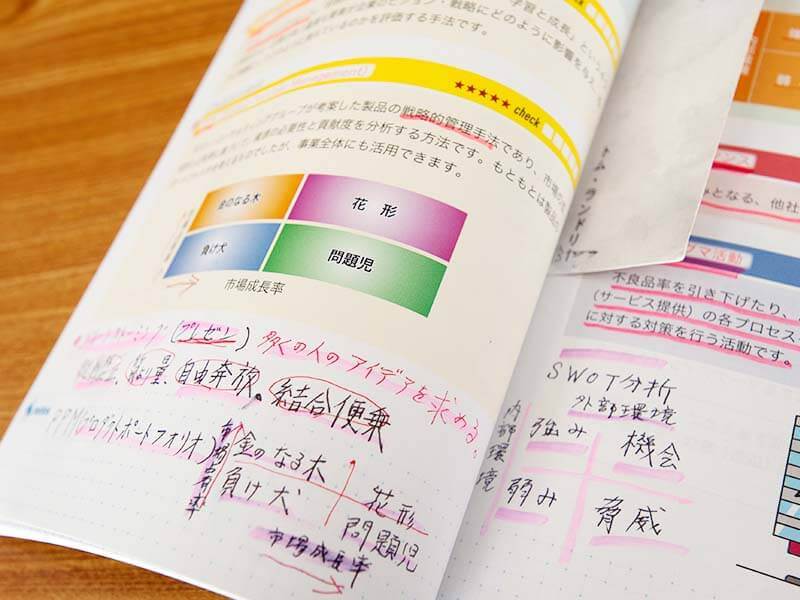 学習と成長」という
戦略にどのように影響を与え
に評価する手法です。
★★★★★ check
Management)
グループが考案した製品の戦略的管理手法であり、市場の
の必要性と貢献度を分析する方法です。もともとは製品の
でしたが、事業全体にも活用できます。
金のなる木
花 形
負け犬
問題児
市場成長率
(プレゼン) 多くの人のアイデアを求める。
自由奔放。結合便乗
PPM(プロダクトポートフォリオ)
金のなる木
負け犬
花形
問題児
市場成長率
トム・ランドリー
なる、他社
マ活動
不良品率を引き下げたり、
(サービス提供)の各プロセス
に対する対策を行う活動です。
SWOT分析
外部環境
内部環境
強み
機会
弱み
脅威